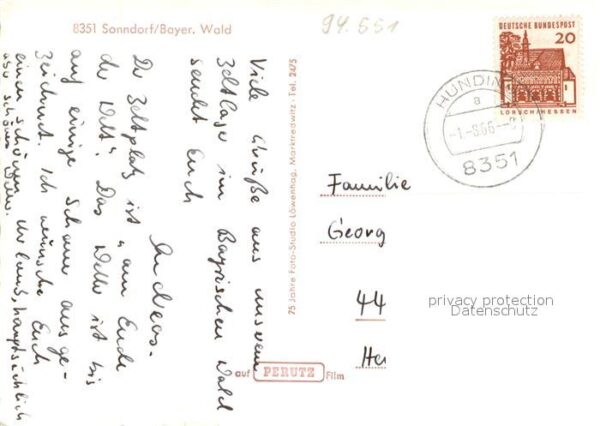 8351 Sonndorf/Bayer. Wald
94.551
Viele Grüße aus unserem
Zeltlager im Bayrischen Wald
sendet Euch
Andreas.
Der Zeltplatz ist "am Ende
der Welt". Das Wetter ist bis
auf einige Schauer ausge-
zeichnet. Ich wünsche Euch
einen schönen Urlaub, hauptsächlich
75 Jahre Foto-Studio Löwenhag, Marktredwitz · Tel. 2475
auf PERUTZ Film
DEUTSCHE BUNDESPOST
20
LORSCH/HESSEN
HUNDIN
a
-1.-8.66-
8351
Familie
Georg
44
He
privacy protection
Datenschutz